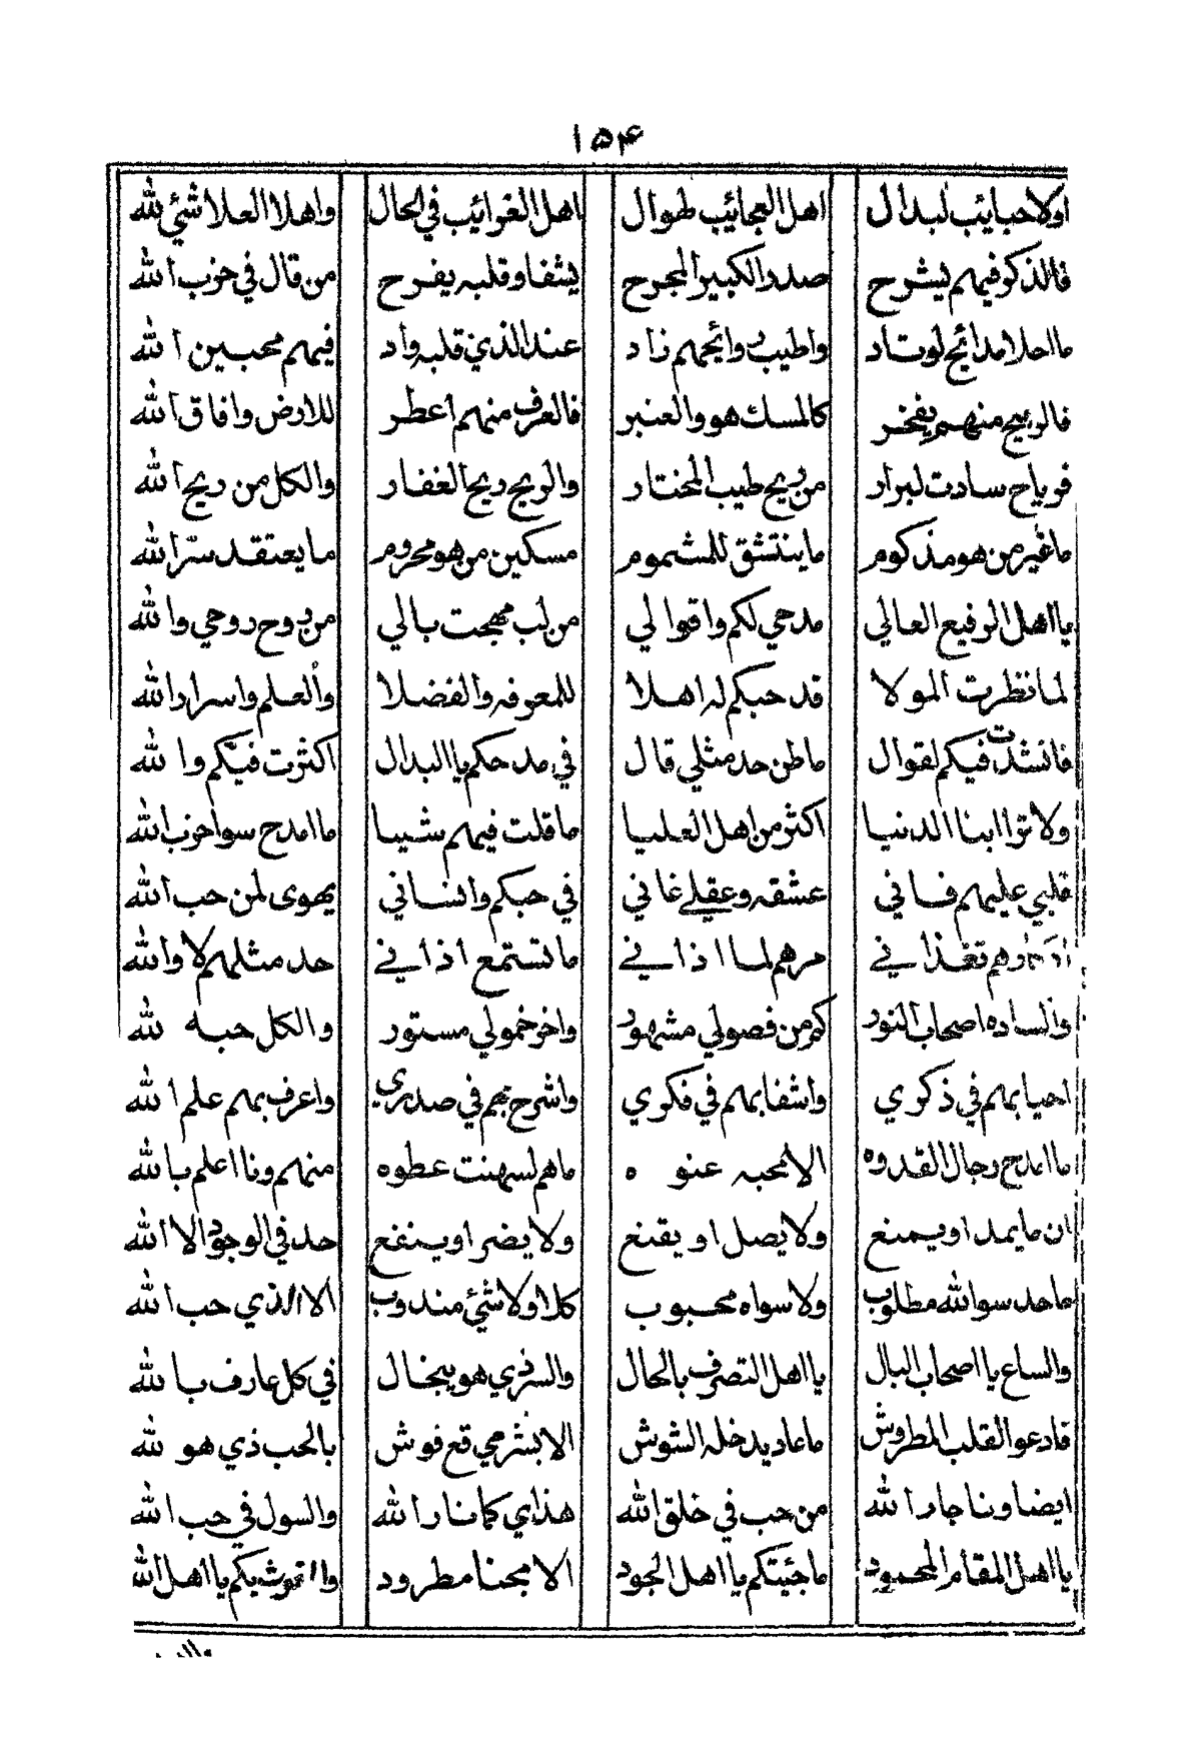 ۱۵۴
اولا حبايب لبدال اهل العجائيب لهوال اهل الغرائيب في الحال واهلا العلا شئ لله
فالذكر فيهم يشرح صدر الكبير المجرح يشفا وقلبه يفرح من قال في حزب الله
ما احلا مدائح لوتاد واطيب روائحهم زاد عند الذي قلبه واد فيهم محبين الله
فالريح منهم يفخر كالمسك هو والعنبر فالعرف منهم اعطر للارض وافاق الله
فرياح سادت لبرار من ريح طيب المختار والريح ريح الغفار والكل من ريح الله
ما غير من هو مذكوم ما ينتشق للمشموم مسكين من هو محروم ما يعتقد سرّ الله
يا اهل الرفيع العالي مدحي لكم واقوالي من لب مهجت بالي من روح روحي والله
لما نظرت المولا قد حبكم له اهلا للمعرفه والفضلا والعلم واسرار الله
فانشدت فيكم لقوال ماظن حد مثلي قال في مدحكم يا البدال اكثرت فيكم والله
ولا ترا ابنا الدنيا اكثر من اهل العليا ما قلت فيهم شيا ما امدح سوا حزب الله
قلبي عليهم فاني عشقه وعقلي غاني في حبكم وانساني يهوى لمن حب الله
وهم تغذاني مرهم لما اذاني ما تستمع اذاني حد مثلهم لا والله
والساده اصحاب النور كم من فصولي مشهور واخر خمولي مستور والكل حبه لله
احيا بهم في ذكري واشفا بهم في فكري واشرح بهم في صدري واعرف بهم علم الله
ما امدح رجال القدوه الا لمحبه عنوه ما هم لسهنت عطوه منهم ونا اعلم بالله
ان ما يمد او يمنع ولا يصل او يقنع ولا يضر او ينفع حد في الوجود الا الله
ما حد سوا الله مطلوب ولا سواه محبوب كلا ولا شئ مندوب الا الذي حب الله
والساع يا اصحاب البال يا اهل التصرف بالحال والسر ذي هو ينجال في كل عارف بالله
فادعو القلب المطروش ما عاد يدخله الشوش الا بشر مي قع فوش بالحب ذي هو لله
ايضا ونا جار الله من حب في خلق الله هذاي كما نار الله والسول في حب الله
يا اهل المقام المحمود ما جئيتكم يا اهل الجود الا محنا مطرود يا اهل الله